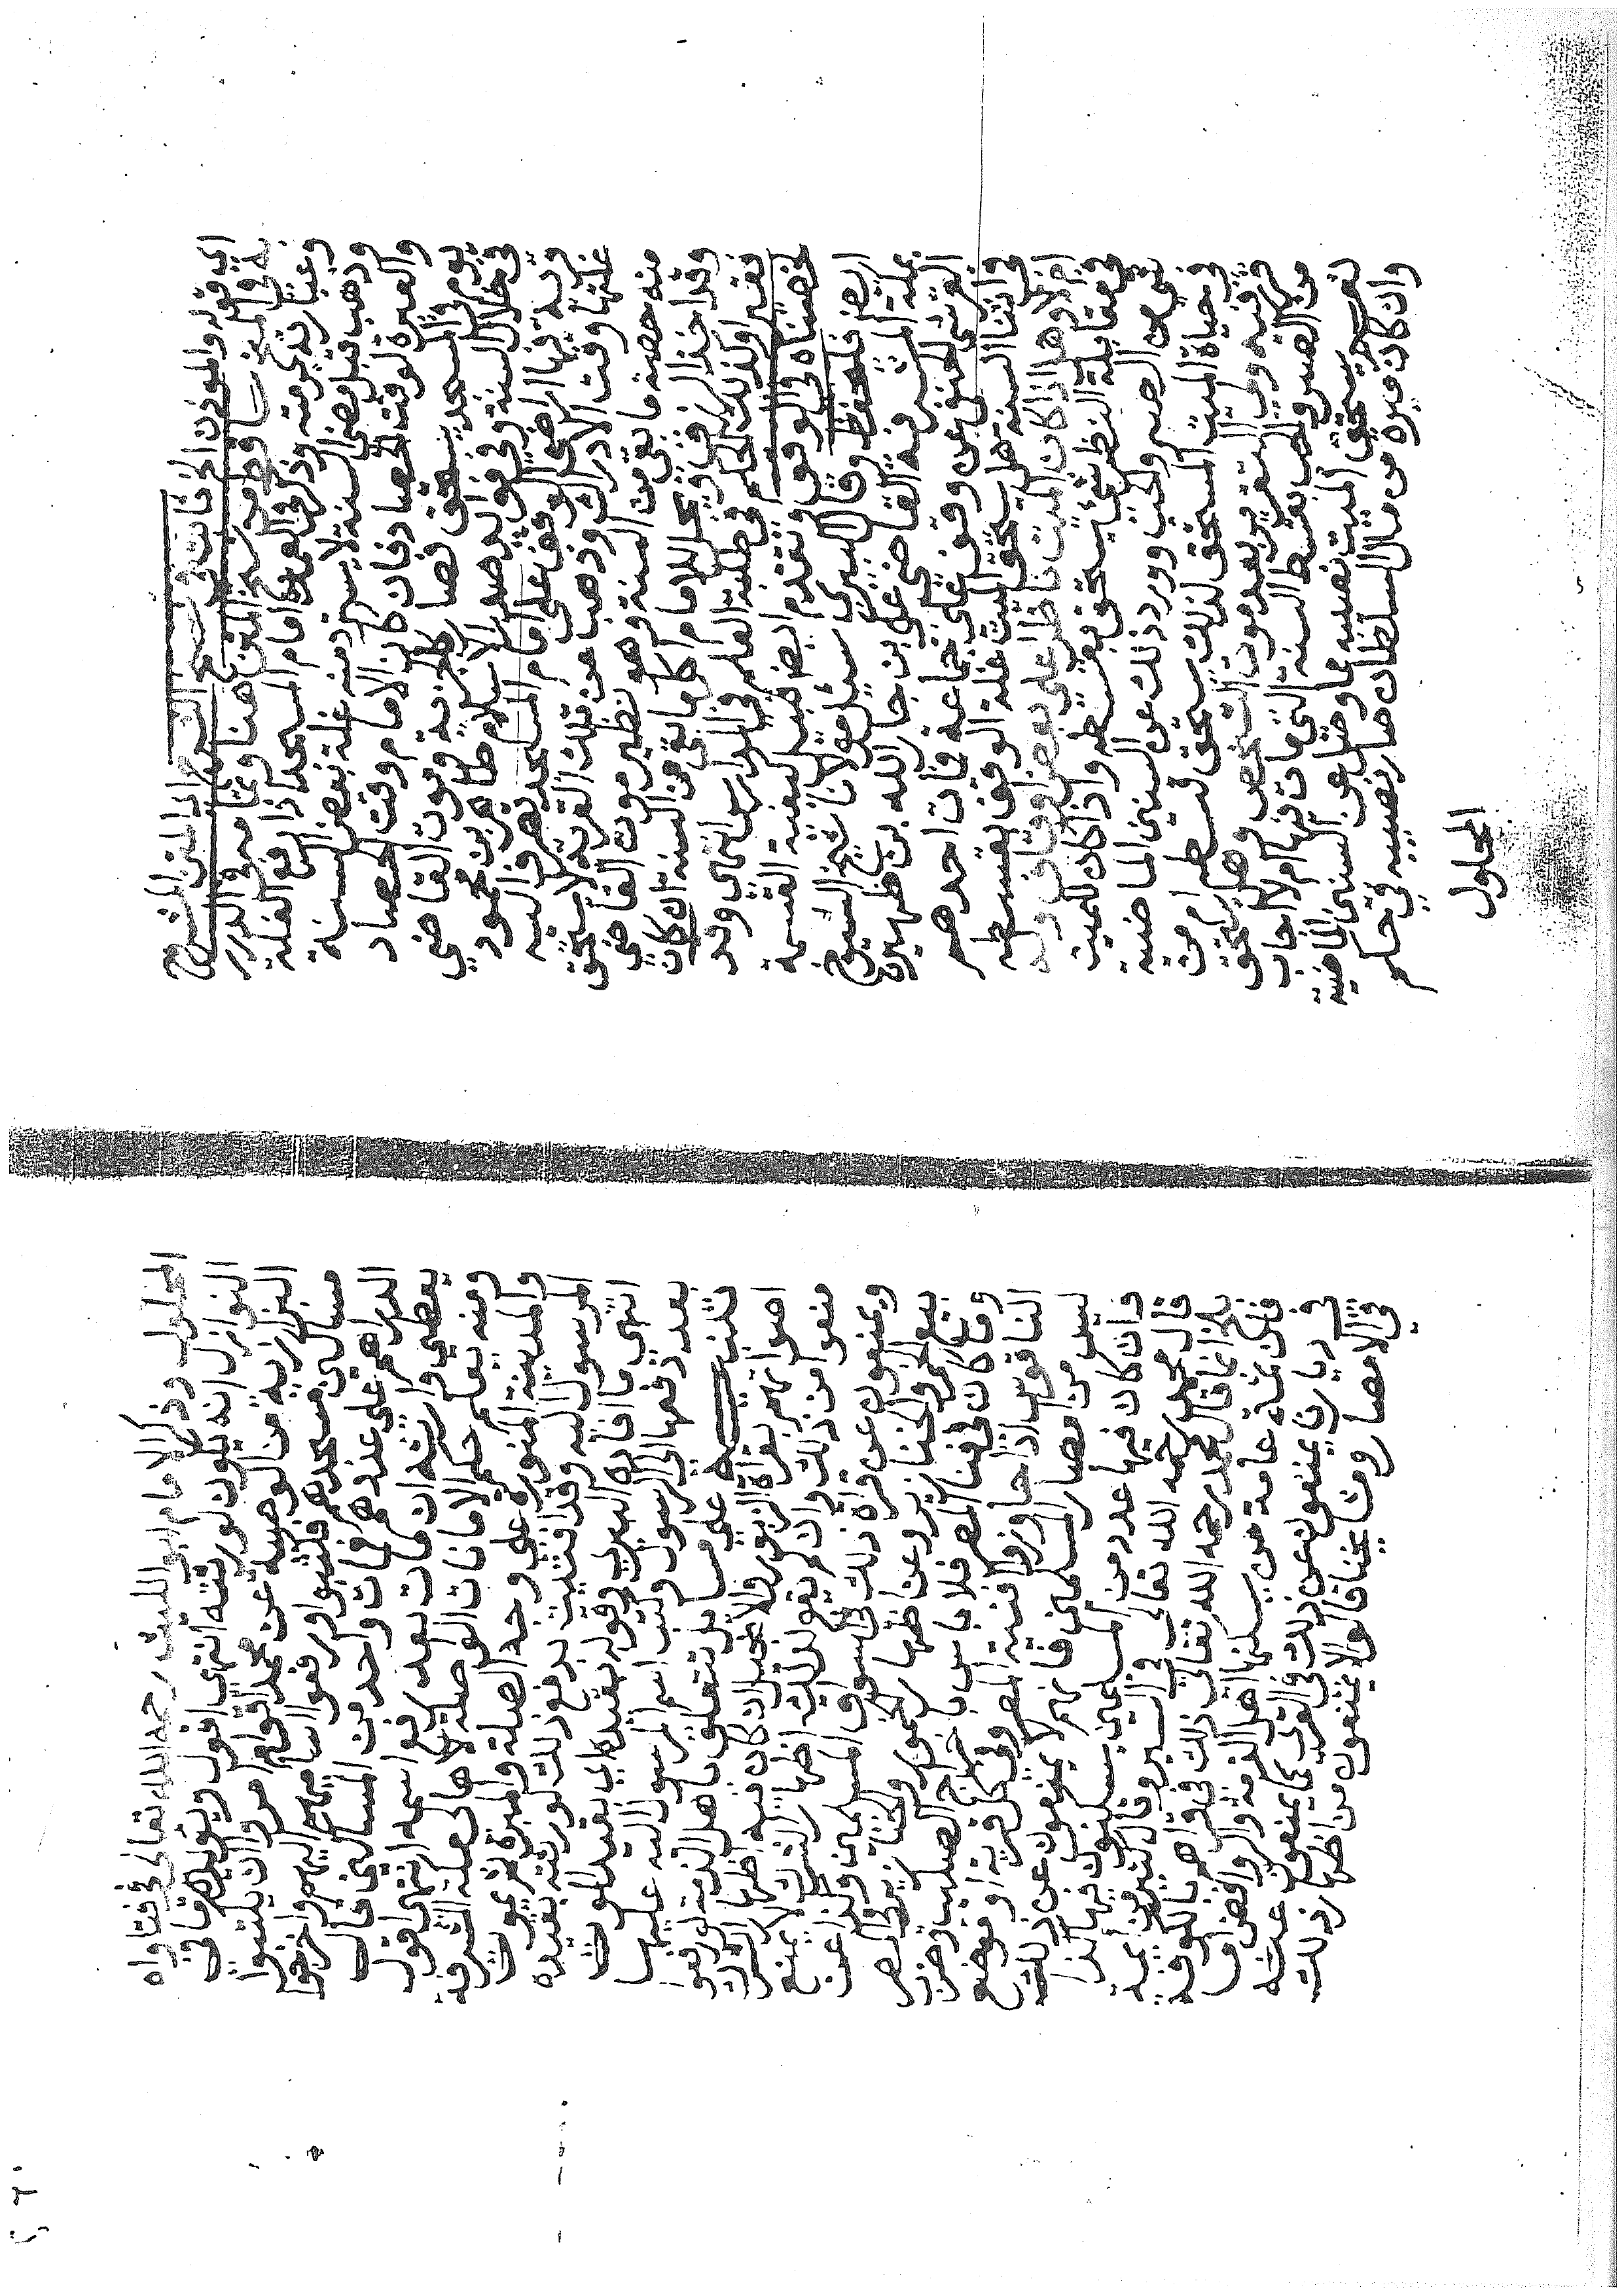 اي قوله والموذن الخ فان
له وفي بعض النسخ هنا وعامه في الدرر
وعبارته برمته وذكر في العدة امام المسجد اذا رفع الغلة
وذهب قبل مضي السنة لا يسترد منه غلة بعض السنة
والعبرة لوقت الحصاد فان كان الامام وقت الحصاد
يوم في المسجد يستحق فصار كالجزية وموت القاضي
في خلال السنة وفي فوايد صدر الاسلام طاهر بن محمود
قرية فيها اراضي الوقف على امام المسجد تصرف اليه
غلتها وقت الادراك وذهب عن تلك القرية لا يسترد
منه حصة ما بقي من السنة وهو نظير موت القاضي
وقد اخذ الرزق ويحل للامام اكل ما بقي من السنة ان كان
فقيرا وكذلك الحكم في طلبة العلم في المدارس انتهى وقد
نصفاه في الوقف وتقدم ايضا قبيل كيفية القسمة
ايضا فليحفظ وقال البيري سئل مولانا شيخ الشيوخ
علي بن جار الله بن ظهيرة
القرشي الحنفي عن وقف على جماعة فمات احدهم
في اثنا السنة هل يستحق الميت غلة الوقف بقسطه
ام لا وهل اذا كان الميت ناظرا على بعض اوقاف وله
في مقابلة النظر شي يستحق بقسطه واذا كان للميت
شي من الصر والحب وورد ذلك عن السنين الماضية
في حياة الميت المستحق لذلك يستحق قسطه ام من
قرر فيه ولي التقرير بعد موت الشخص وهل يستحق
من الصر والحب بقسط السنة التي مات فيها ام لا اجاب
نعم يستحق الميت نصيبه مما وصل عن السنين الماضية
وان كان خيره من مال السلطان صار نصيبه في حكم
المحلول
المحلول وذكر الامام ابو الليث رحمه الله تعالى في فتاواه
النوازل انه يكون لورثته انتهى اقول ويويده ما في
البزازية من الوصية عن محمد قوم امروا ان يكتبوا
مساكين مسجدهم فكتبوا ورفعوا اساميهم واخرجوا
الدراهم على عددهم فمات واحد من المساكين قال
يعطى وارثه ان مات بعد رفع اسمه انتهى اقول
ومنه يعلم حكم الامانات الواصلة لاهالي مكة المشرفة
والمدينة المنورة على وجه الصلة والمبرة ثم يموت
المرسول اليه وقد افتيت بدفع ذلك لورثته بعيده
انتهى ما افاده البيري وقوله بقيد اي بقيد الموت
بعد دفعها الى الرسول وكتب اسم المرسول اليه عليها
تنبيه على مسايل تتعلق باهل الذمة لو رفعوا
اصواتهم بقراة الزبور والانجيل ان كان فيه اظهار الشرك
منعوا من ذلك وان لم يقع بذلك اظهار الشرك لا يمنع
ويمنعون عن قراة ذلك في اسواق المسلمين وكذا عن
بيع الخمور والخنازير وعن اظهار الخمور والخنازير في المصر
وما كان في فنا المصر فلا باس باخراج الصليب وضرب
الناقوس اذا جاوزوا افنية المصر وفي كل قرية او موضع
ليس من امصار المسلمين فانهم لا يمنعون عن ذلك
وان كان فيها عدد من المسلمين يسكنون فيها كذا
قال محمد رحمه الله تعالى في السير وقال كثير من ايمة
بلخ انما قال محمد رحمه الله تعالى ذلك في قراهم بالكوفة
فان ثمة عامة من يسكنها اهل الذمة والروافض اما
في ديارنا يمنعون عن ذلك في القرى كما يمنعون عنه
في الامصار ومشايخنا قالوا لا يمنعون من اظهار ذلك